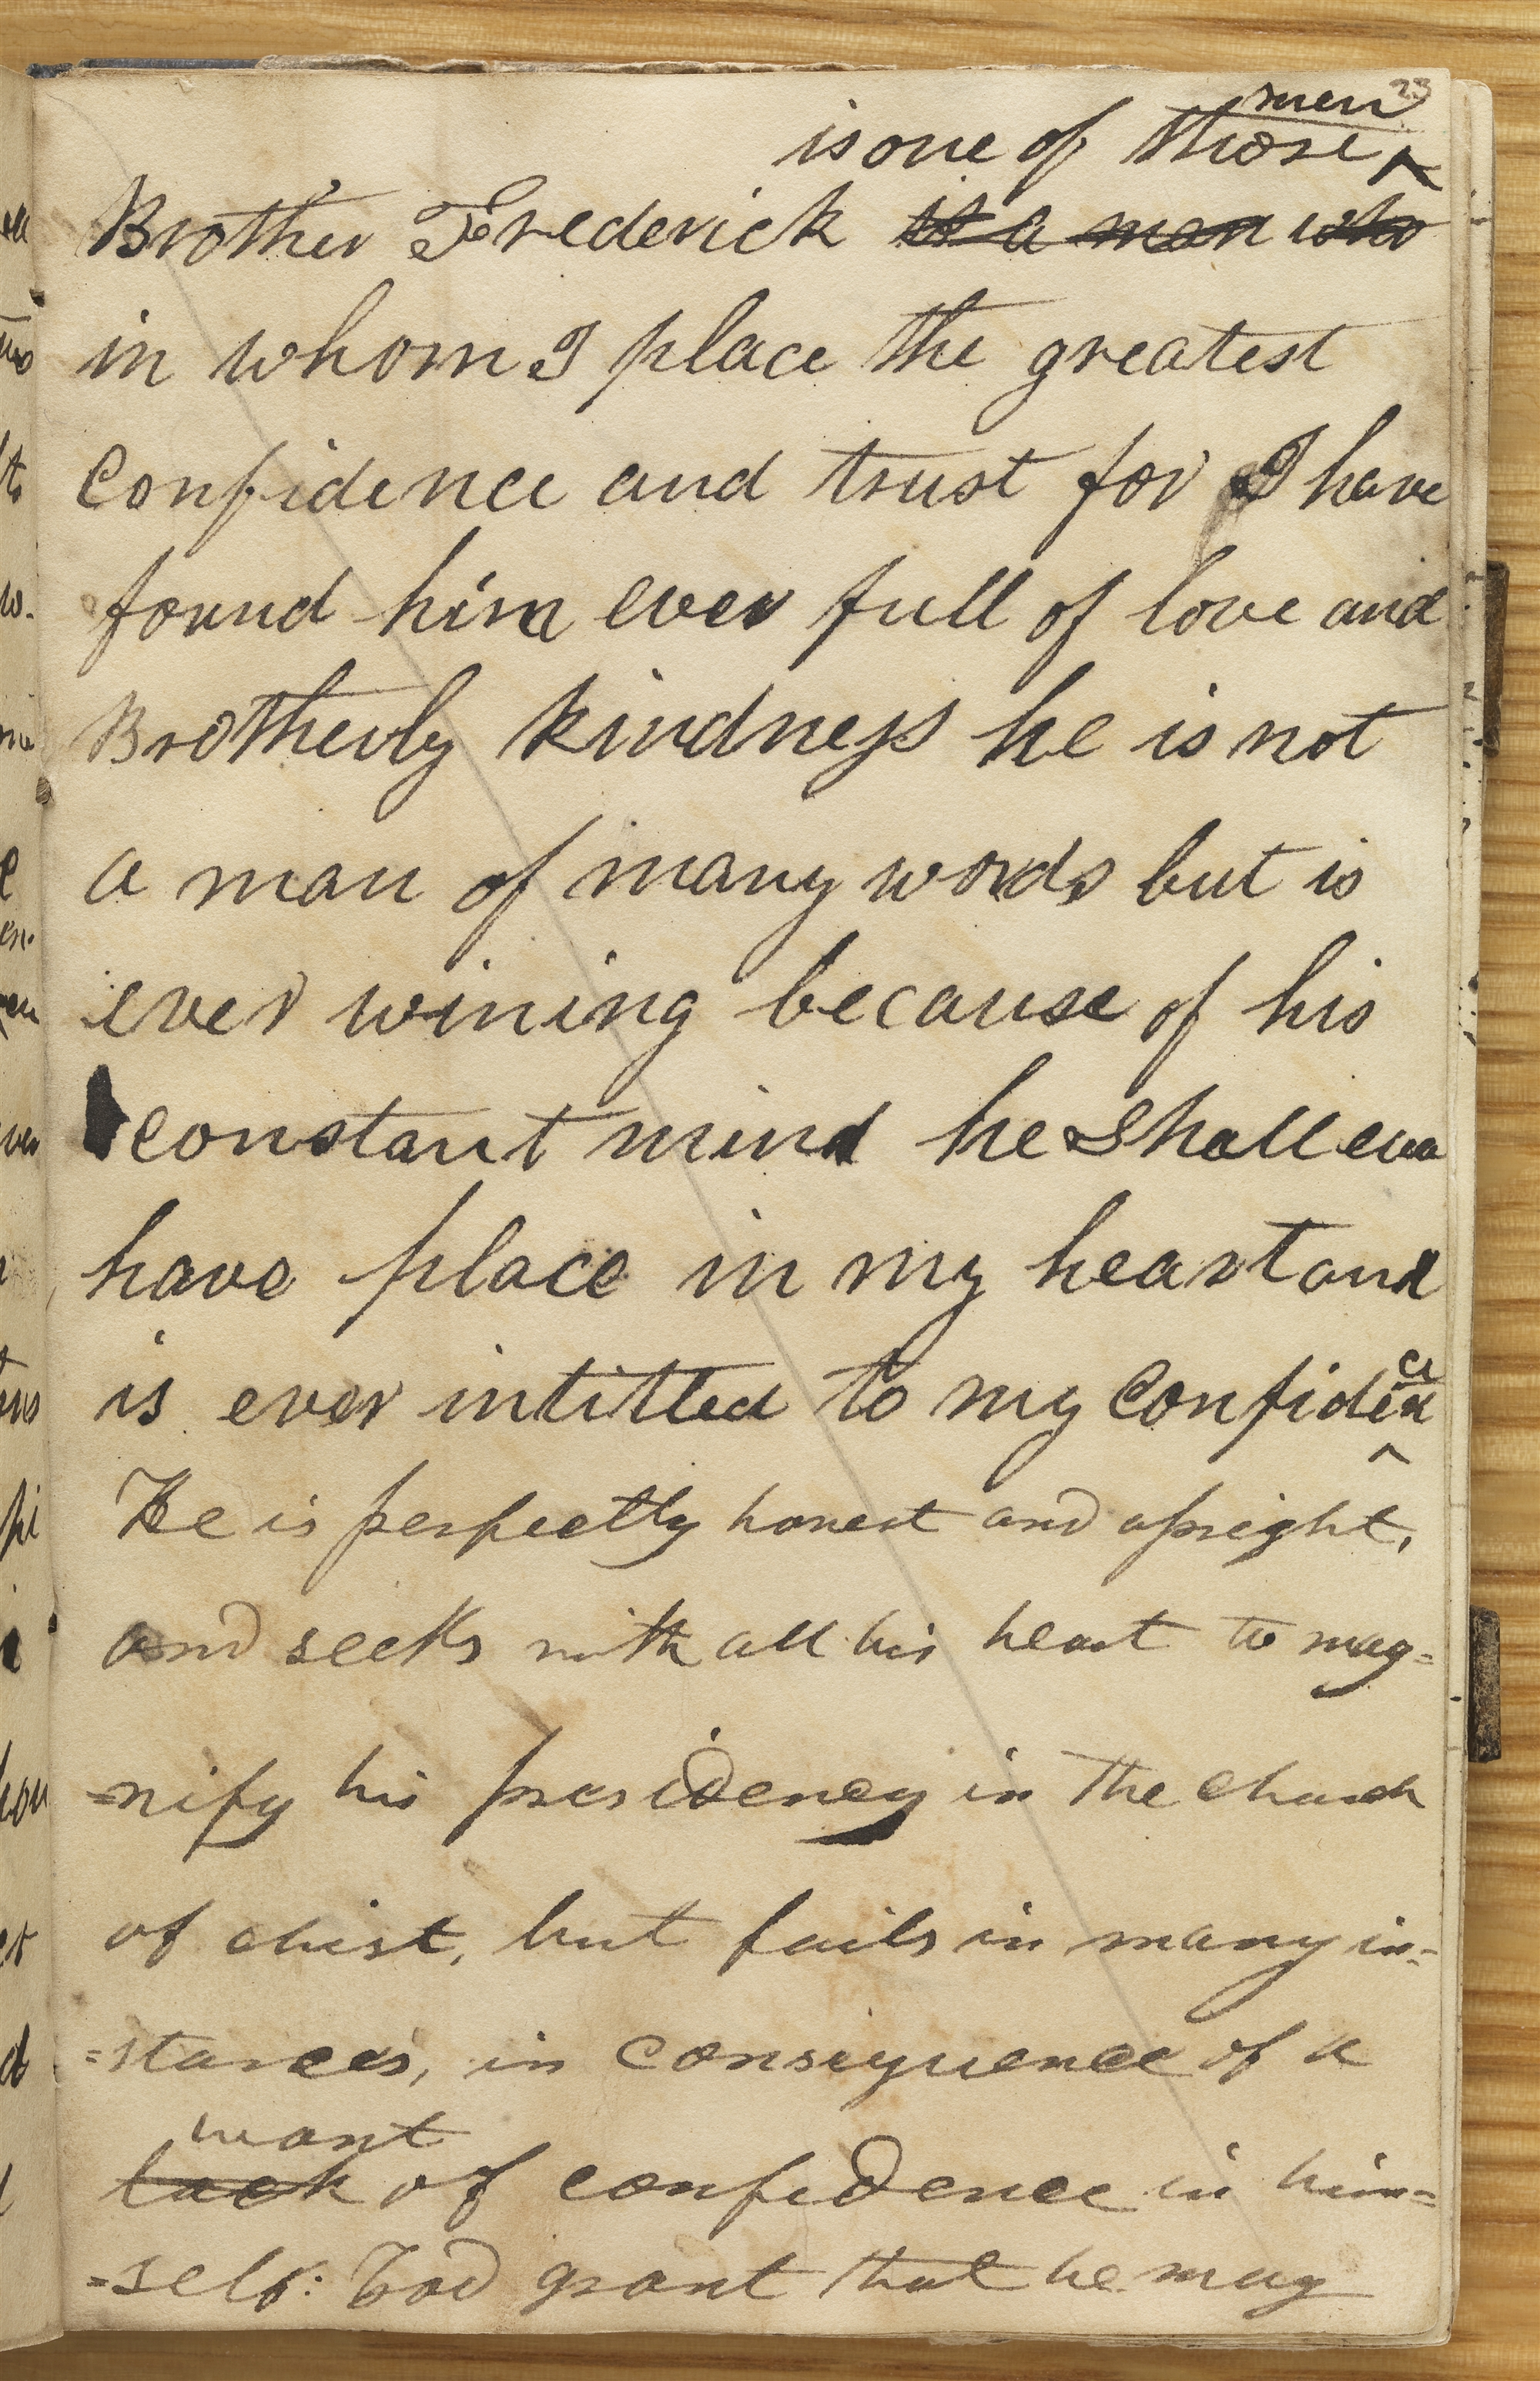 23
men
is one of those ^
Brother Frederick is a man who
in whom I place the greatest
confidence and trust for I have
found him ever full of love and
Brotherly kindness he is not
a man of many words but is
ever wining because of his
constant mind he shall ever
have place in my heart and
is ever intitled to my confiden
ce
^
He is perfectly honest and upright,
and seeks with all his heart to mag=
=nify his presidency in the church
of christ, but fails in many in=
=stances, in consequence of a
want
lack of confidence in him=
=self: God grant that he may